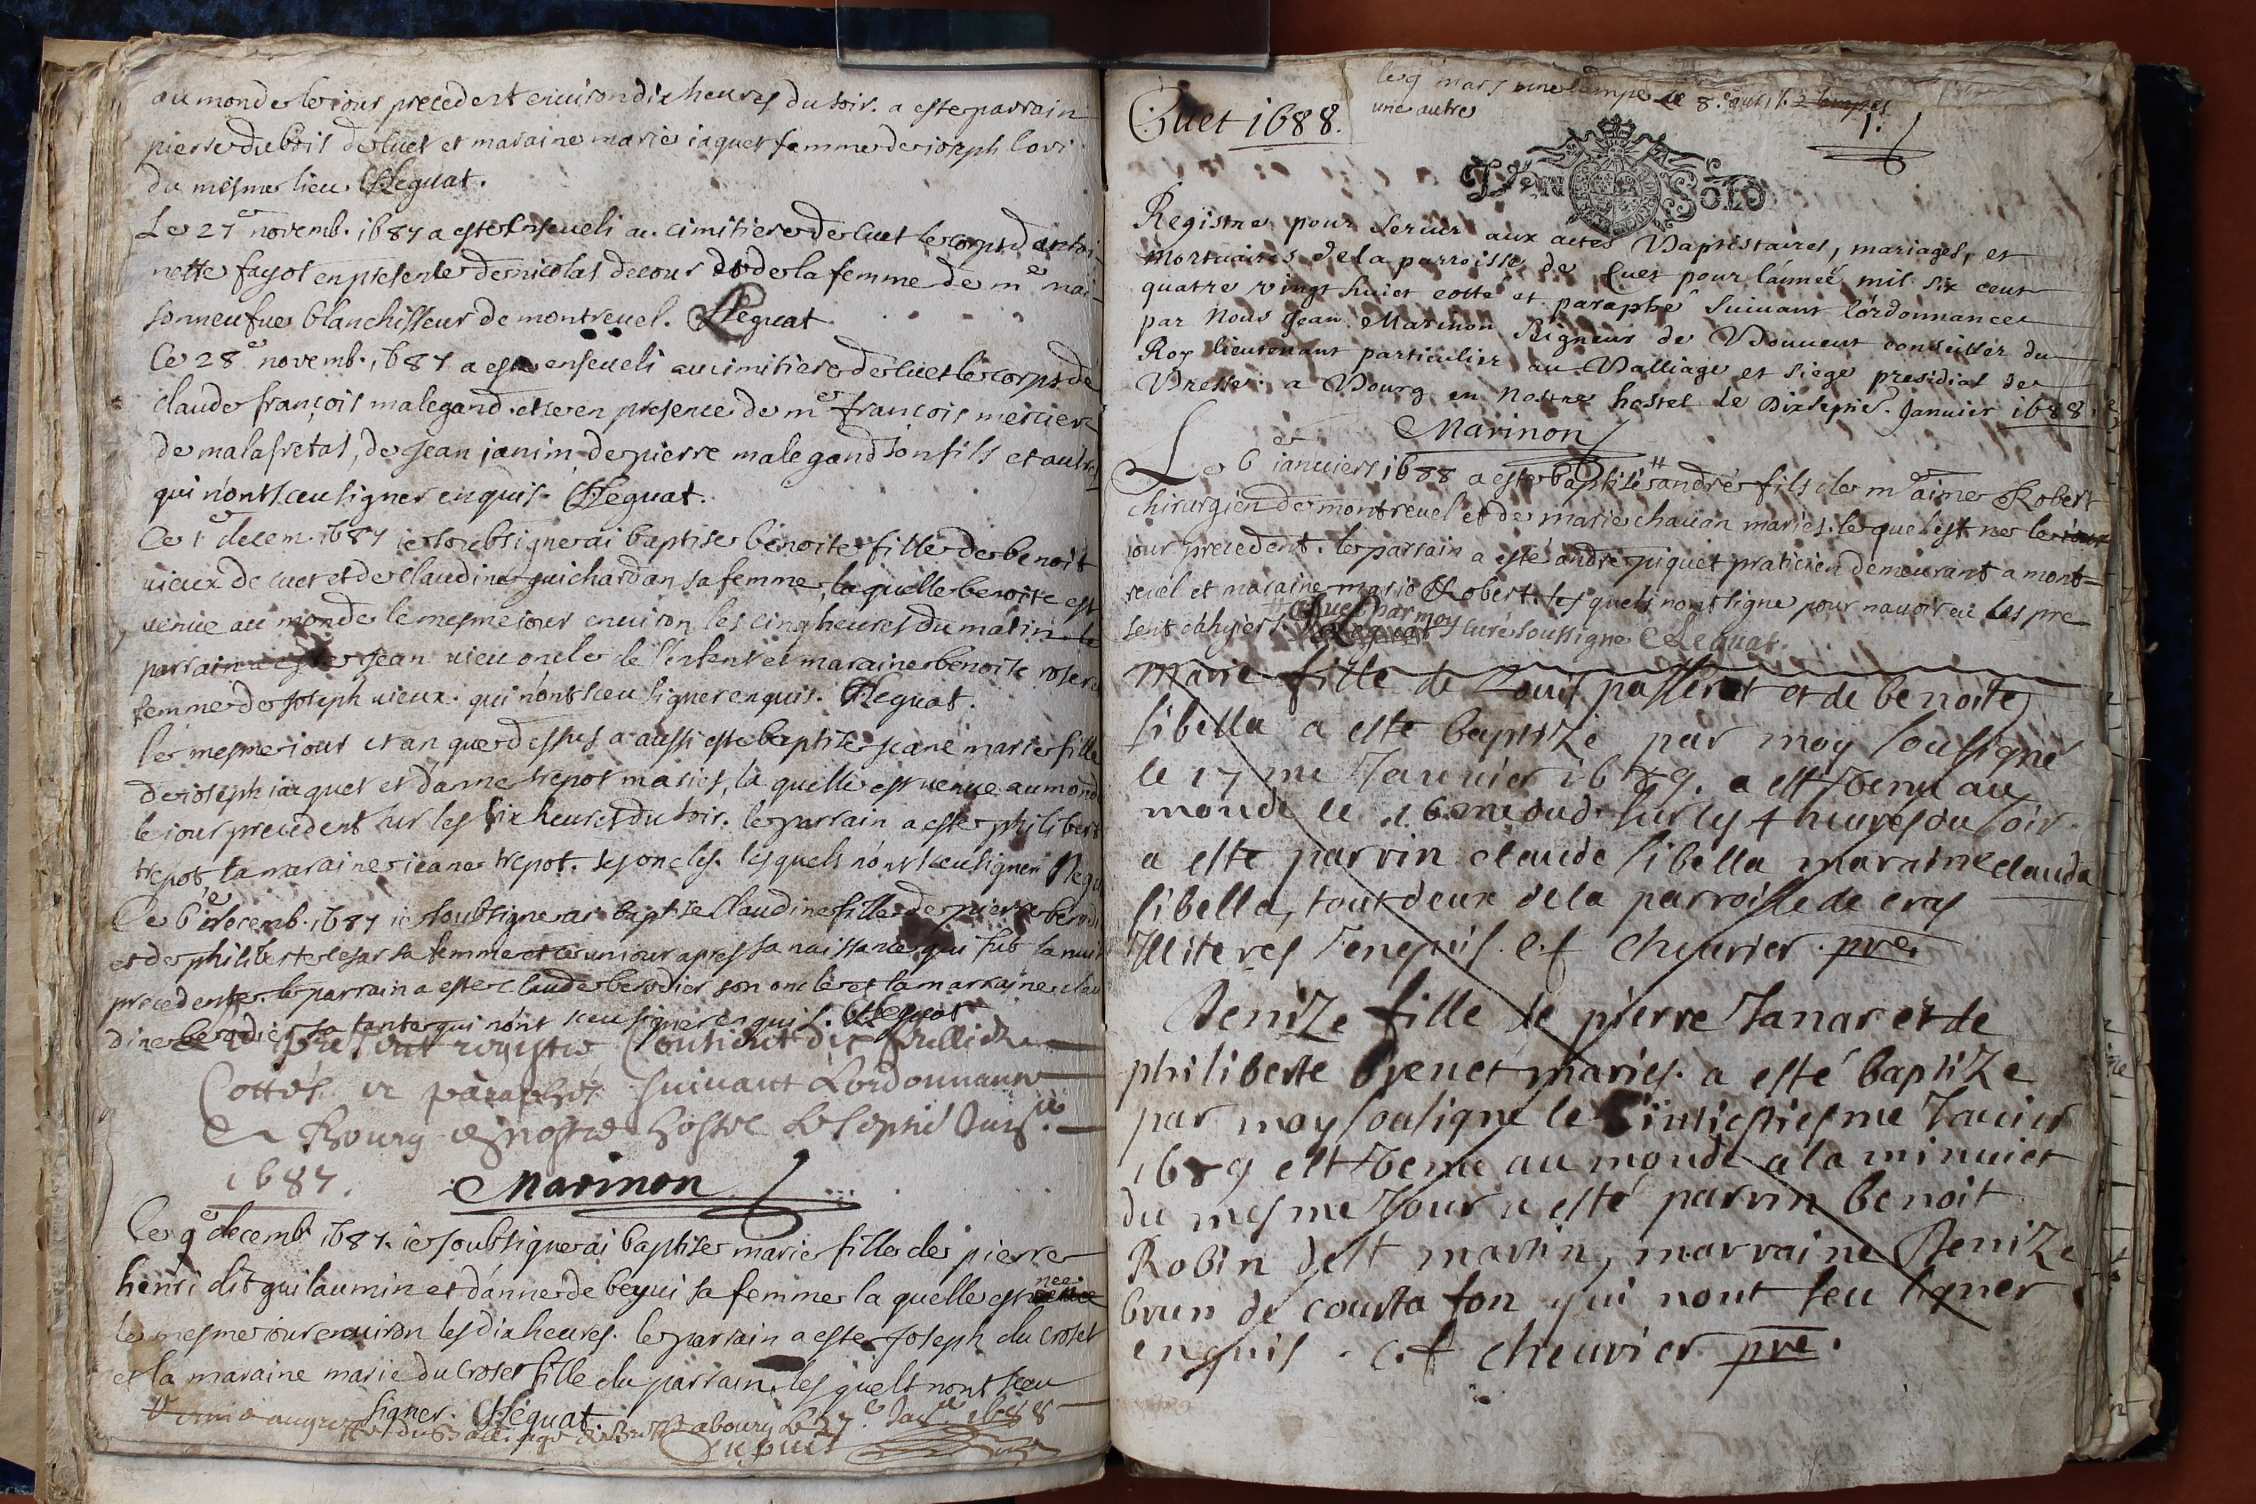 au monde le iour precedent enuiron dix heures du soir. a esté parrain
pierre dubois de cuet et maraine marie iaquet femme de ioseph lovi
du mesme lieu. CLeguat.
Le 27e novemb. 1687 a esté enseueli au cimitiere de cuet le corps d'antoi-
nette fayot en presence de nicolas decour et de la femme de me mai-
sonneufue blanchisseur de montreuel. CLeguat
Ce 28e novemb. 1687 a esté enseueli au cimitiere de cuet le corps de
claude françois malegand. et ce en presence de me françois mercier
de malafretas, de Jean janin de pierre malegand son fils et autres
qui n'ont sceu signer enquis. CLeguat.
Ce 1er decem. 1687 ie soubsigné ai baptisé benoite fille de benoit
uieux de cuet et de claudine guichardan sa femme, la quelle benoite est
venue au monde le mesme iour enuiron les cinq heures du matin le
parrain a esté Jean uieu oncle de l'enfent et maraine benoite rosere
femme de Joseph uieux. qui n'ont sceu signer enquis. CLeguat.
le mesme iour et an que dessus a aussi esté baptisée jeane marie fille
de ioseph iacquet et d'anne trepot mariés, la quelle est venue au monde
le iour precedent sur les six heures du soir. le parrain a esté philibert
trepot la maraine ieane trepot. ses oncles. lesquels n'ont sceu signer Legu
Ce 6e decemb. 1687 ie soubsigné ai baptisé Claudine fille de pierre berodi
et de philiberte cesar sa femme et ce un iour apres sa naissance qui fut la nuit
precedente. le parrain a esté claude berodier son oncle et la marraine clau
dine berodier sa tante qui n'ont sceu signer enquis. CLeguat
Le present registre Contient dix feulliets
Cottés et paraphés suiuant L'ordonnance
A Bourg en nostre hostel Le septie Jan.
1687. Marinon
Ce 9e decemb 1687. ie soubsigné ai baptisé marie fille de pierre
henri dit guilaumin et d'anne de beyui sa femme la quelle est née
le mesme iour enuiron les dix heures. le parrain a esté Joseph du croset
et la maraine marie du croset fille du parrain. les quels n'ont sceu
signer. CLeguat.
au greffe du Balliage de Bresse a bourg le 27e Jan. 1688
Cuet 1688.
le 9 mars une lempe le 8e
une autre
1.
DEUX SOLS
Registre pour Seruir aux actes Baptistaires, mariages, et
mortuaires de la parroisse de Cuet pour l'année mil six cent
quatre vingt huict cotté et paraphé Suiuant l'ordonnance
par Nous Jean Marinon Seigneur de Douuent conseiller du
Roy lieutenant particulier au Balliage et siege presidial de
Bresse. a Bourg en Nostre hostel le Dixseptie. Januier 1688.
Marinon
Le 6er ianuier 1688 a esté baptisé # andré fils de me aimé Robert
chirurgien de montreuel et de marie chauan mariés. le quel est né le iour
iour precedent. le parrain a esté andre piquet praticien demeurant a mont=
reuel et maraine marie Robert. les quels n'ont signé pour n'auoir eu les pre
sent cahyers. # Cuet par moy curé soussigné CLeguat.
marie fille de Louis passerat et de benoite
sibella a esté baptizé par moy sousigné
le 17me Januier 1689. a est venu au
monde le 16me dud sur les 4 heures du soir
a esté parrin claude sibella maraine clauda
sibella, tout deux de la parroisse de cras
Illiterés Jenquis. c.f cheurier pre.
Denize fille de pierre Janar et de
philiberte brenet mariés. a esté baptize
par moy sousigné le Janvier
1689 est venu au monde a la minuict
du mesme Jour a esté parrin benoit
Robin de st martin, marraine Denize
brun de courta fon qui nont seu signer
enquis. c.f cheuvier pre.